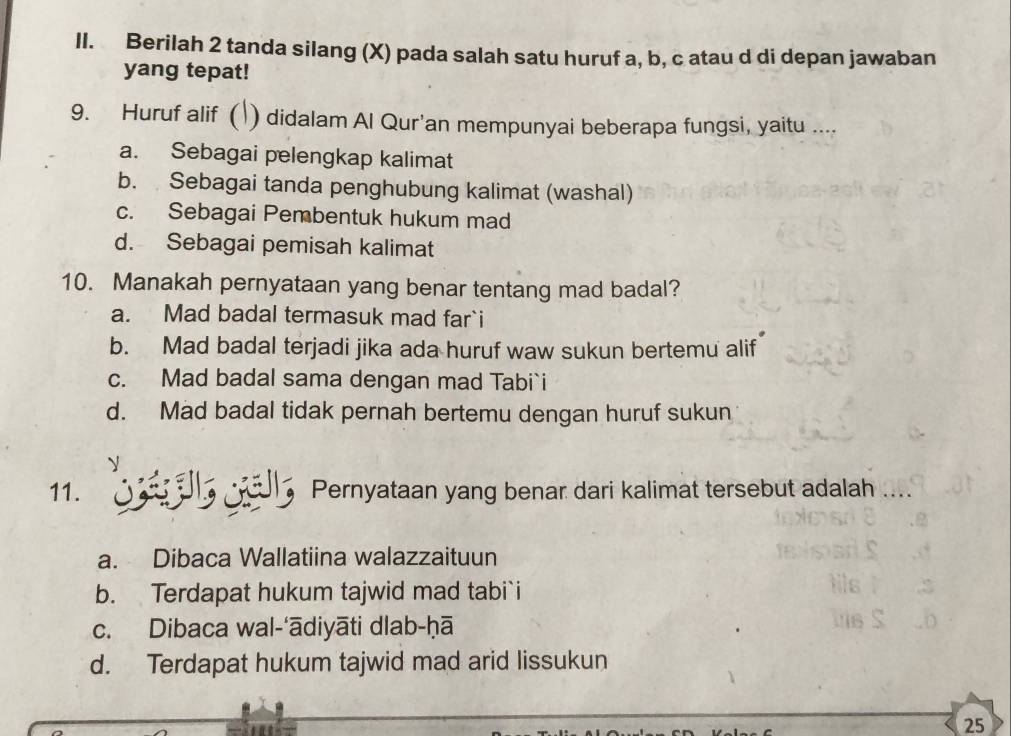 II. Berilah 2 tanda silang (X) pada salah satu huruf a, b, c atau d di depan jawaban
yang tepat!
9. Huruf alif (ا) didalam Al Qur'an mempunyai beberapa fungsi, yaitu ....
a. Sebagai pelengkap kalimat
b. Sebagai tanda penghubung kalimat (washal)
c. Sebagai Pembentuk hukum mad
d. Sebagai pemisah kalimat
10. Manakah pernyataan yang benar tentang mad badal?
a. Mad badal termasuk mad far`i
b. Mad badal terjadi jika ada huruf waw sukun bertemu alif
c. Mad badal sama dengan mad Tabi`i
d. Mad badal tidak pernah bertemu dengan huruf sukun
11. وَالتِّيْنِ وَالزَّيْتُوْنِۙ Pernyataan yang benar dari kalimat tersebut adalah ....
a. Dibaca Wallatiina walazzaituun
b. Terdapat hukum tajwid mad tabi`i
c. Dibaca wal-‘ādiyāti dlab-ḥā
d. Terdapat hukum tajwid mad arid lissukun
25